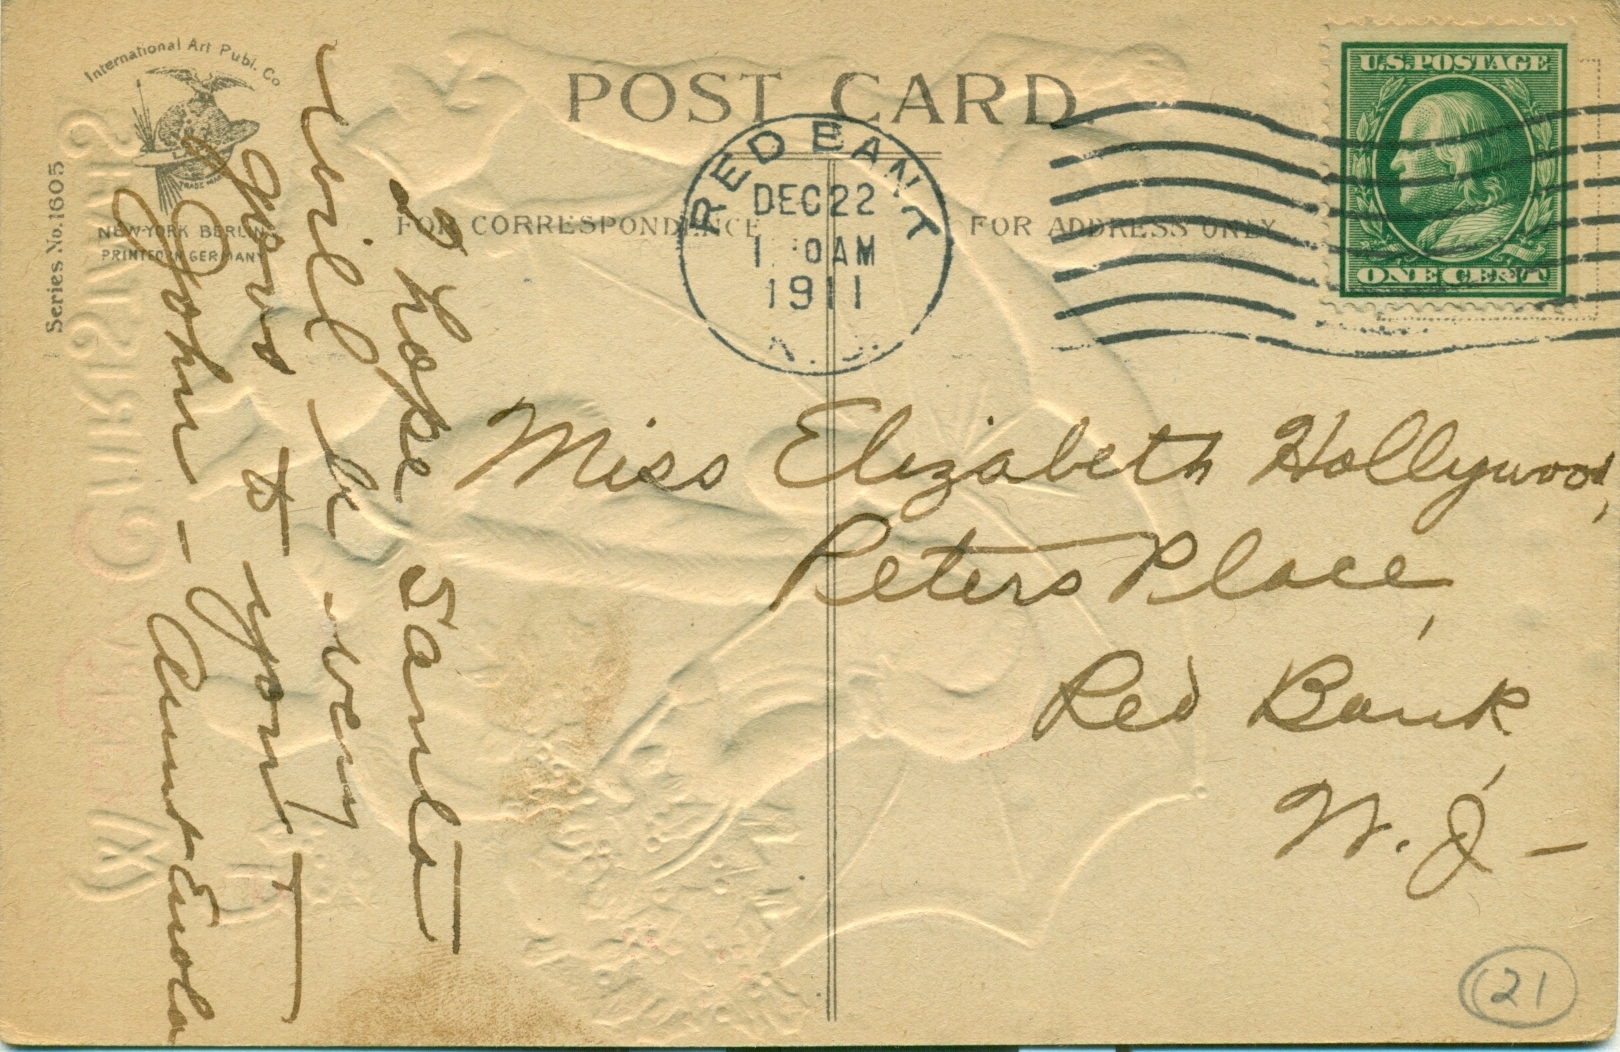 International Art Publ. Co
TRADE MARK
NEW-YORK BERLIN
PRINTED IN GERMANY
Series No. 1605
POST CARD
FOR CORRESPONDENCE
FOR ADDRESS ONLY
RED BANK
DEC 22
AM
1911
N.J.
U.S. POSTAGE
ONE CENT
I hope Santa
will be very
good to you +
John - Aunt Enola
Miss Elizabeth Hollywood,
Peters Place,
Red Bank,
N.J. -
21